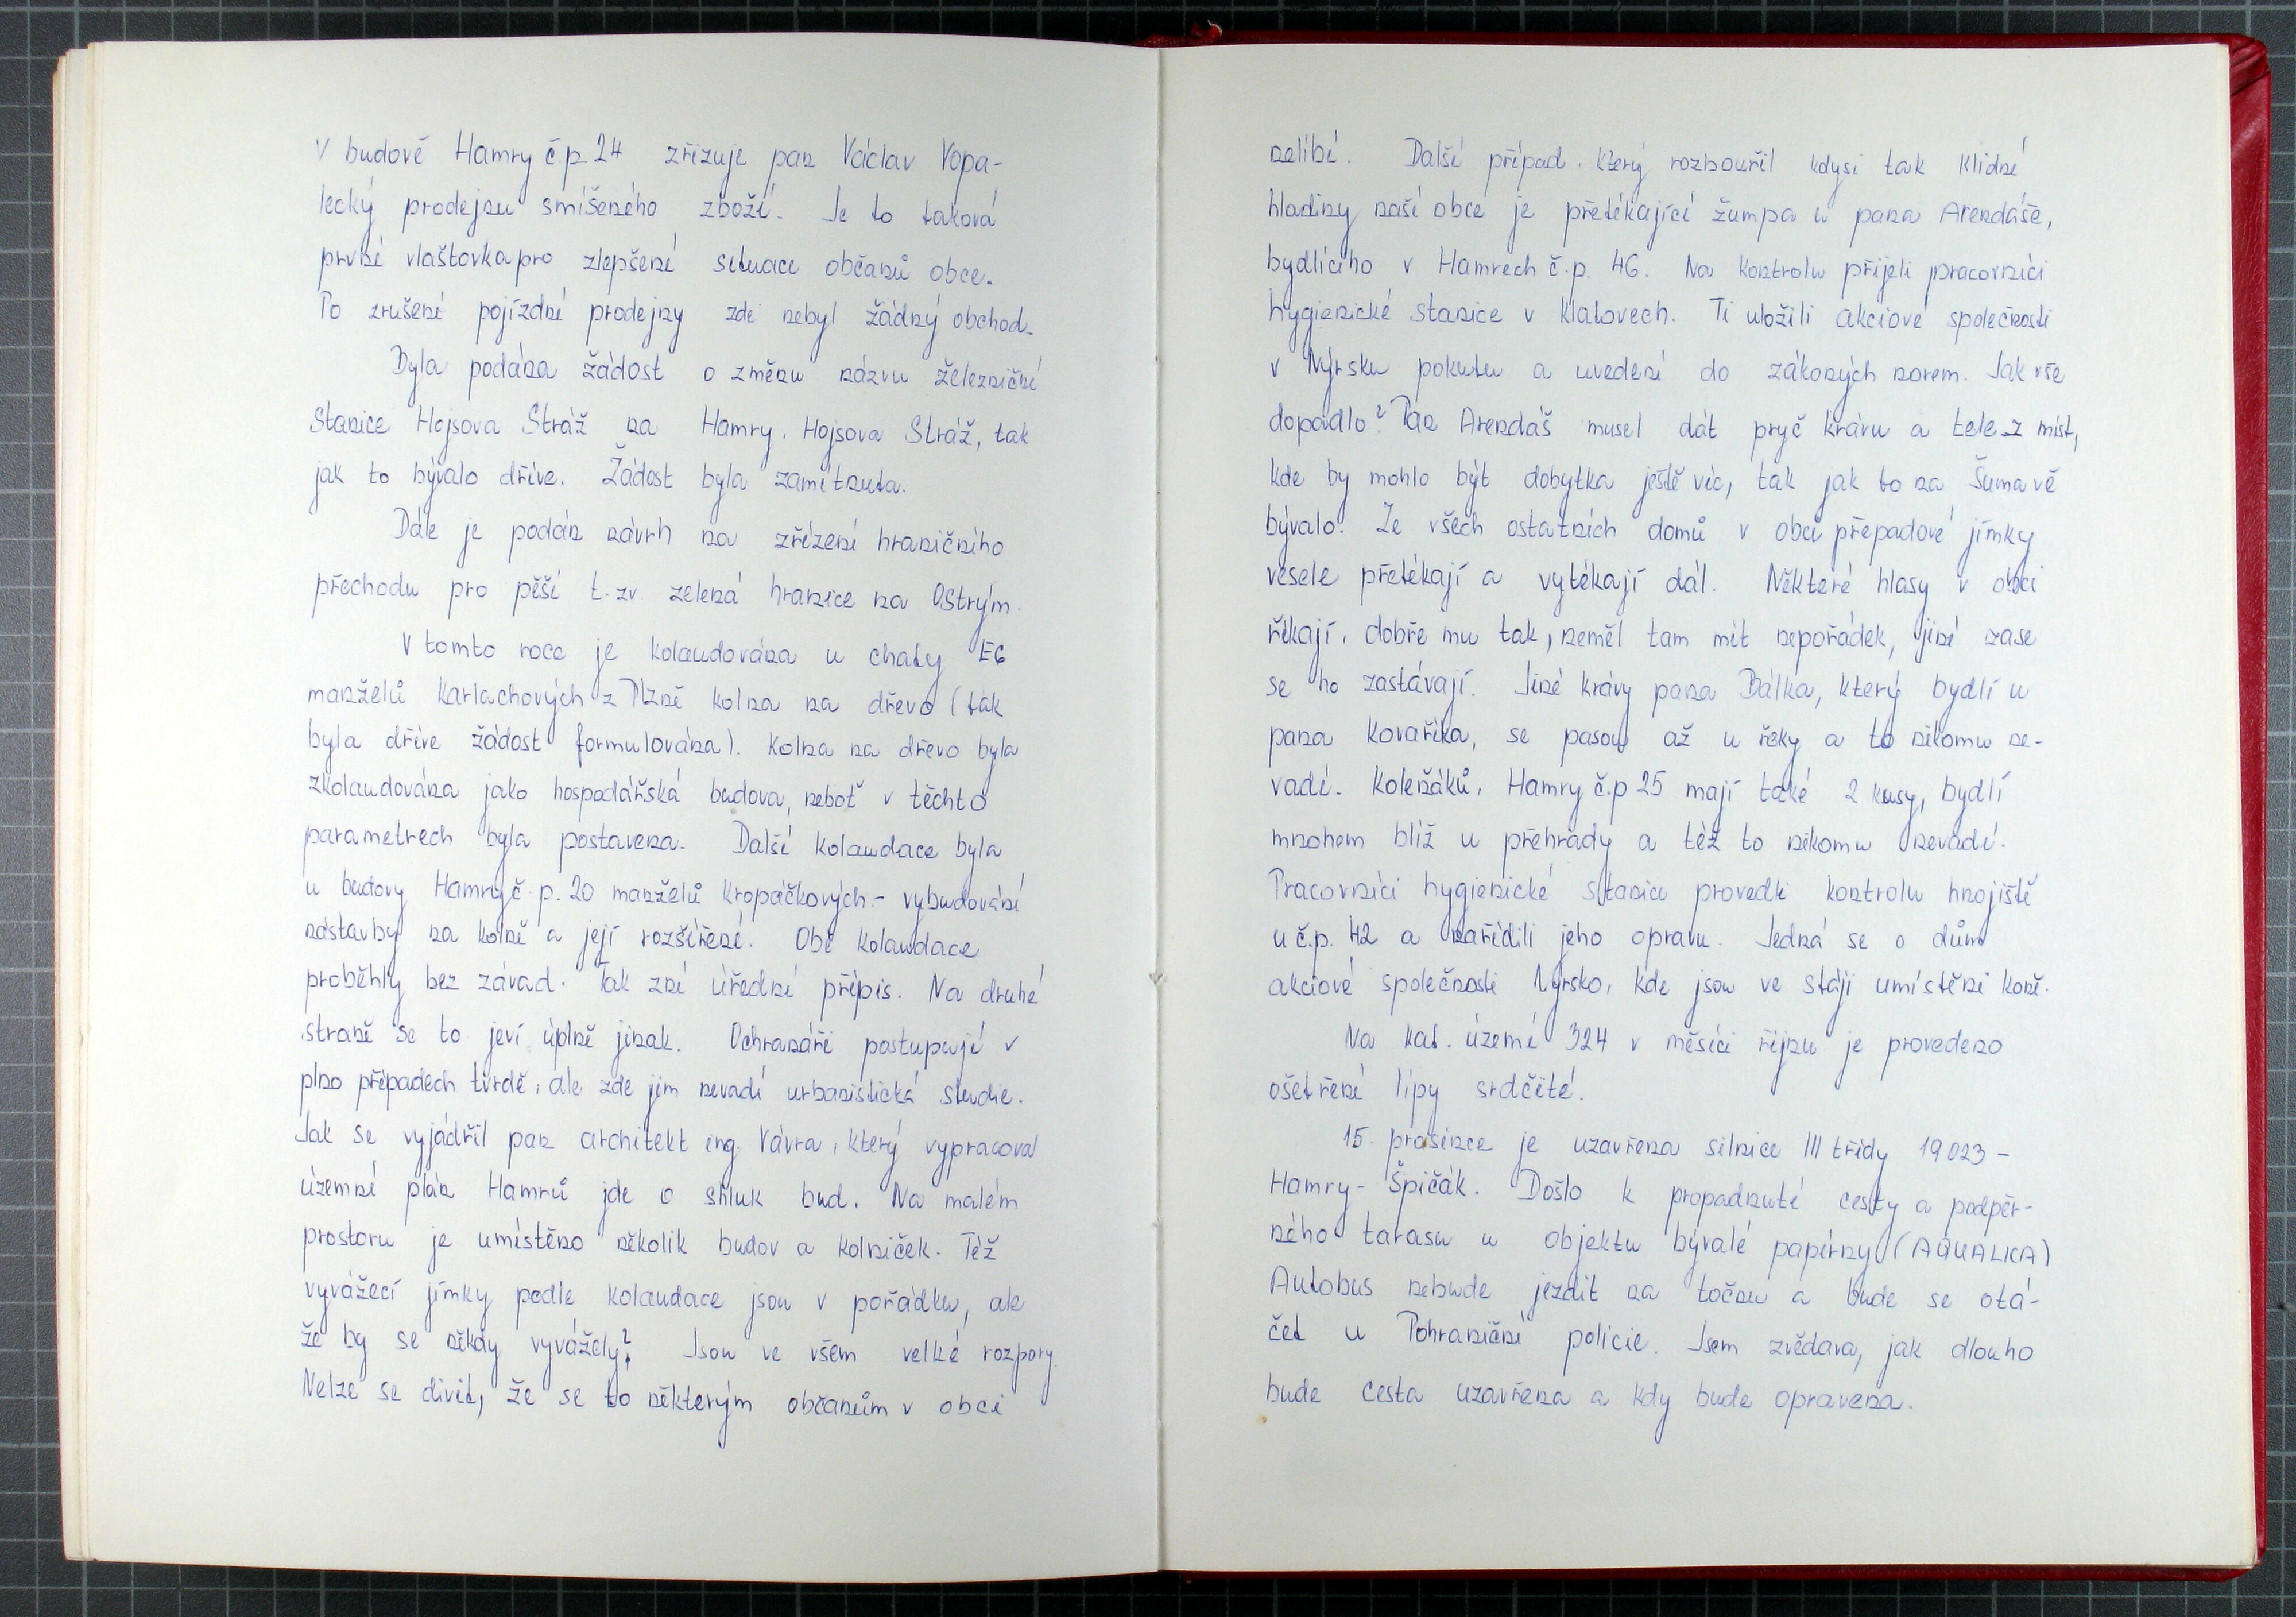 V budově Hamry č.p. 24 zřizuje pan Václav Vopa-
lecký prodejnu smíšeného zboží. Je to taková
první vlaštovka pro zlepšení situace občanů obce.
Po zrušení pojízdné prodejny zde nebyl žádný obchod.
Byla podána žádost o změnu názvu železniční
stanice Hojsova Stráž na Hamry, Hojsova Stráž, tak
jak to bývalo dříve. Žádost byla zamítnuta.
Dále je podán návrh na zřízení hraničního
přechodu pro pěší t.zv. zelená hranice na Ostrým.
V tomto roce je kolaudována u chaty E6
manželů Karlachových z Plzně kolna na dřevo (tak
byla dříve žádost formulována). Kolna na dřevo byla
zkolaudována jako hospodářská budova, neboť v těchto
parametrech byla postavena. Další kolaudace byla
u budovy Hamry č.p. 20 manželů Kropáčkových - vybudování
nástavby na kolně a její rozšíření. Obě kolaudace
proběhly bez závad. Tak zní úřední přípis. Na druhé
straně se to jeví úplně jinak. Ochranáři postupují v
plno případech tvrdě, ale zde jim nevadí urbanistická studie.
Jak se vyjádřil pan architekt ing. Vávra, který vypracoval
územní plán Hamrů jde o shluk bud. Na malém
prostoru je umístěno několik budov a kolniček. Též
vyvážecí jímky podle kolaudace jsou v pořádku, ale
že by se někdy vyvážely? Jsou ve všem velké rozpory.
Nelze se divit, že se to některým občanům v obci
nelíbí. Další případ, který rozbouřil kdysi tak klidné
hladiny naší obce je přetékající žumpa u pana Arendáše,
bydlícího v Hamrech č.p. 46. Na kontrolu přijeli pracovníci
hygienické stanice v Klatovech. Ti uložili akciové společnosti
v Nýrsku pokutu a uvedení do zákoných norem. Jak vše
dopadlo? Pan Arendáš musel dát pryč krávu a tele z míst,
kde by mohlo být dobytka ještě víc, tak jak to na Šumavě
bývalo. Ze všech ostatních domů v obci přepadové jímky
vesele přetékají a vytékají dál. Některé hlasy v obci
říkají, dobře mu tak, neměl tam mít nepořádek, jiné zase
se ho zastávají. Jiné krávy pana Bálka, který bydlí u
pana Kovaříka, se pasou až u řeky a to nikomu ne-
vadí. Koleňáků, Hamry č.p 25 mají také 2 kusy, bydlí
mnohem blíž u přehrady a též to nikomu nevadí.
Pracovníci hygienické stanice provedli kontrolu hnojiště
u č.p. 42 a nařídili jeho opravu. Jedná se o dům
akciové společnosti Nýrsko, kde jsou ve stáji umístěni koně.
Na kat. území 324 v měsíci říjnu je provedeno
ošetření lípy srdčité.
15. prosince je uzavřena silnice III třídy 19023 -
Hamry - Špičák. Došlo k propadnuté cesty a podpěr-
ného tarasu u objektu bývalé papírny (AQUALKA)
Autobus nebude jezdit na točnu a bude se otá-
čet u Pohraniční policie. Jsem zvědava, jak dlouho
bude cesta uzavřena a kdy bude opravena.